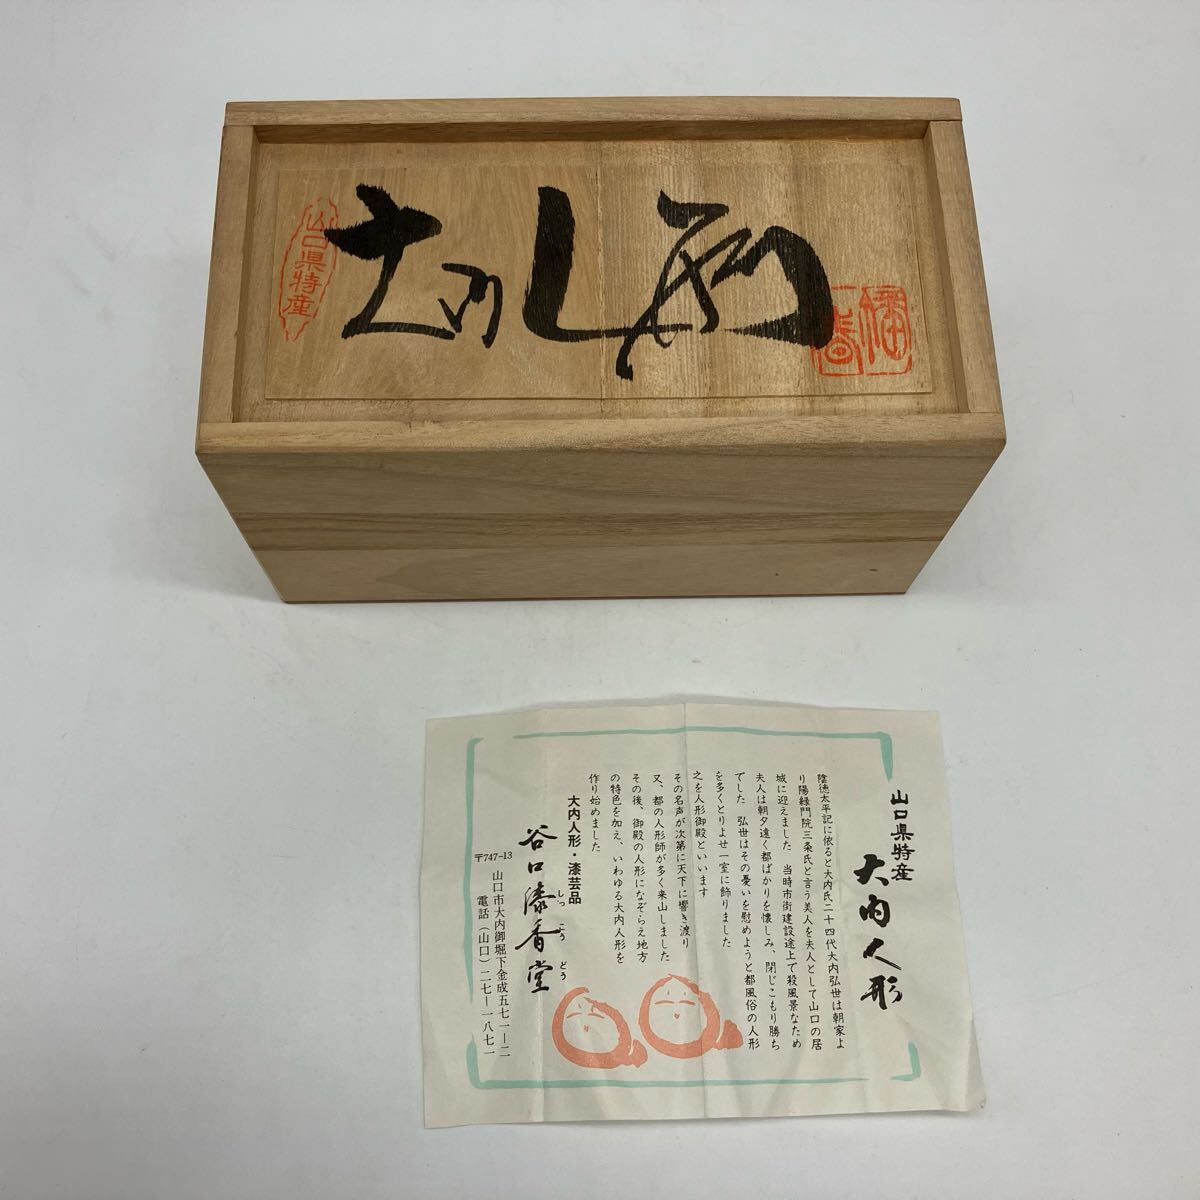 山口県特産
大内人形
山口県特産
大内人形
陰徳太平記に依ると大内氏二十四代大内弘世は朝家よ
り陽緑門院三条氏と言う美人を夫人として山口の居
城に迎えました 当時市街建設途上で殺風景なため
夫人は朝夕遠く都ばかりを懐しみ、閉じこもり勝ち
でした 弘世はその憂いを慰めようと都風俗の人形
を多くとりよせ一室に飾りました
之を人形御殿といいます
その名声が次第に天下に響き渡り
又、都の人形師が多く来山しました
その後、御殿の人形になぞらえ地方
の特色を加え、いわゆる大内人形を
作り始めました
大内人形・漆芸品
谷口漆香堂
しっ こう どう
〒747-13
山口市大内御堀下金成五七一ー二
電話(山口)二七ー一八七一